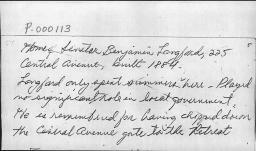 P-000113
Home Senator Benjamin Langford, 225
Central Avenue, built 1884.
Langford only spent summers here. Played
no significant role in local government.
He is remembered for having chopped down
the Central Avenue gate to the Retreat